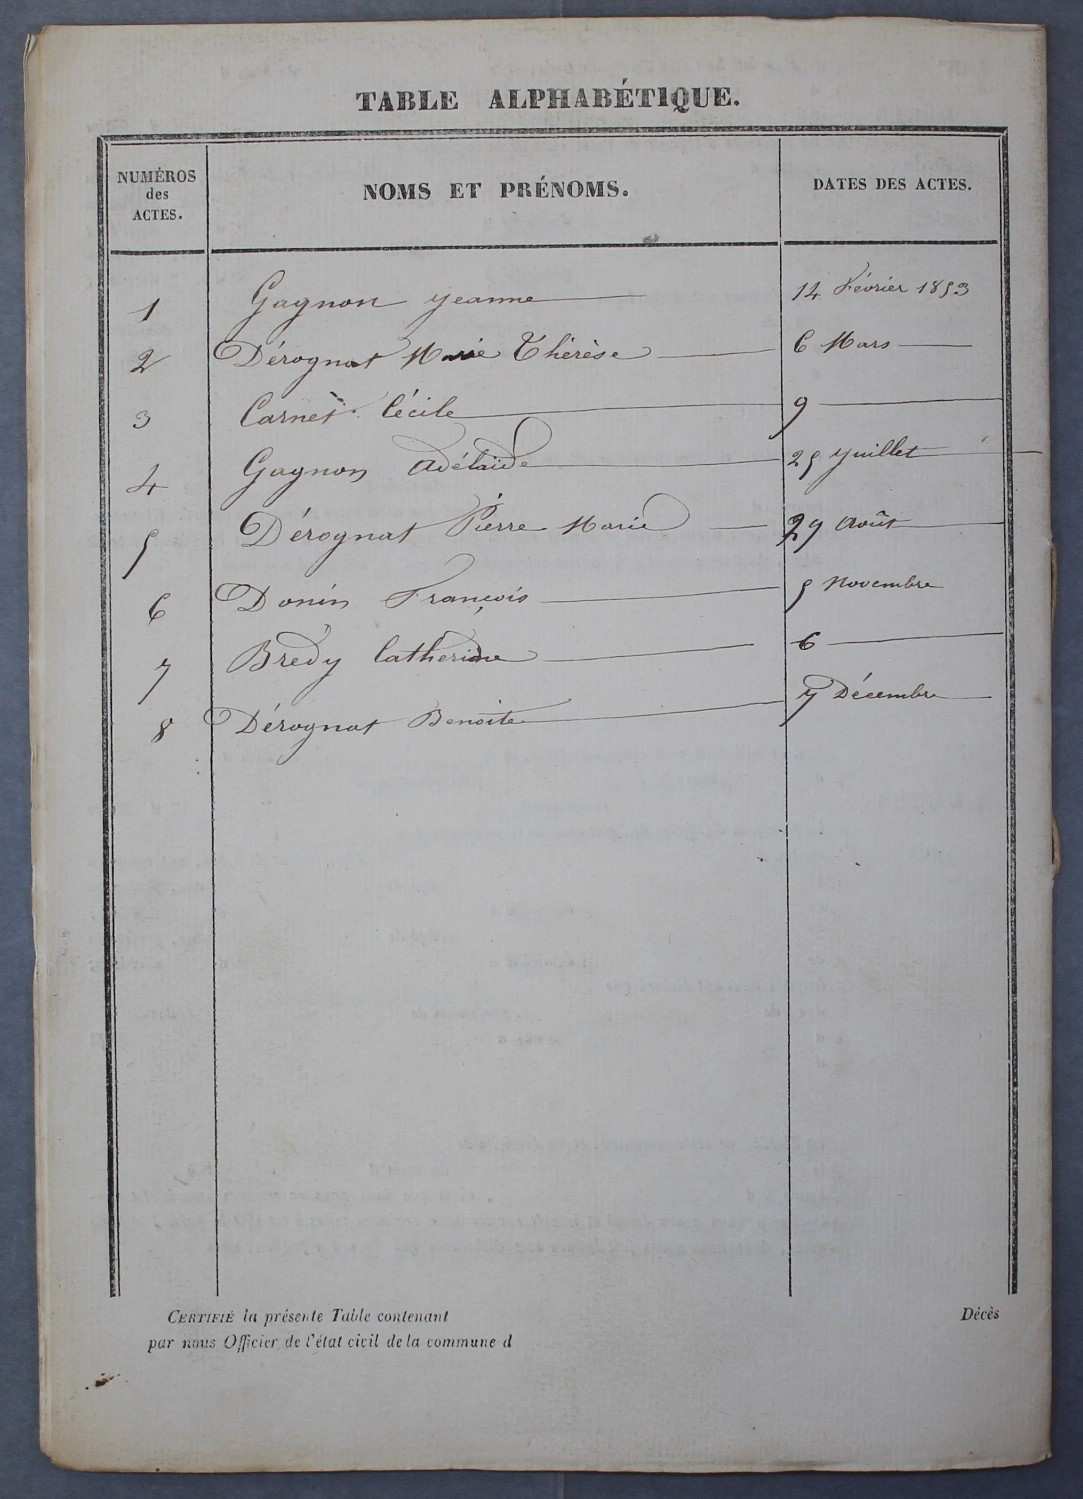 TABLE ALPHABÉTIQUE.
NUMÉROS des ACTES. NOMS ET PRÉNOMS. DATES DES ACTES.
1 Gagnon Jeanne 14 Février 1853
2 Dérognat Marie Thérèse 6 Mars
3 Carnet Cécile 9
4 Gagnon Adélaïde 25 Juillet
5 Dérognat Pierre Marie 29 Août
6 Donin François 5 Novembre
7 Bredy Catherine 6
8 Dérognat Benoite 7 Décembre
CERTIFIÉ la présente Table contenant Décès
par nous Officier de l'état civil de la commune d